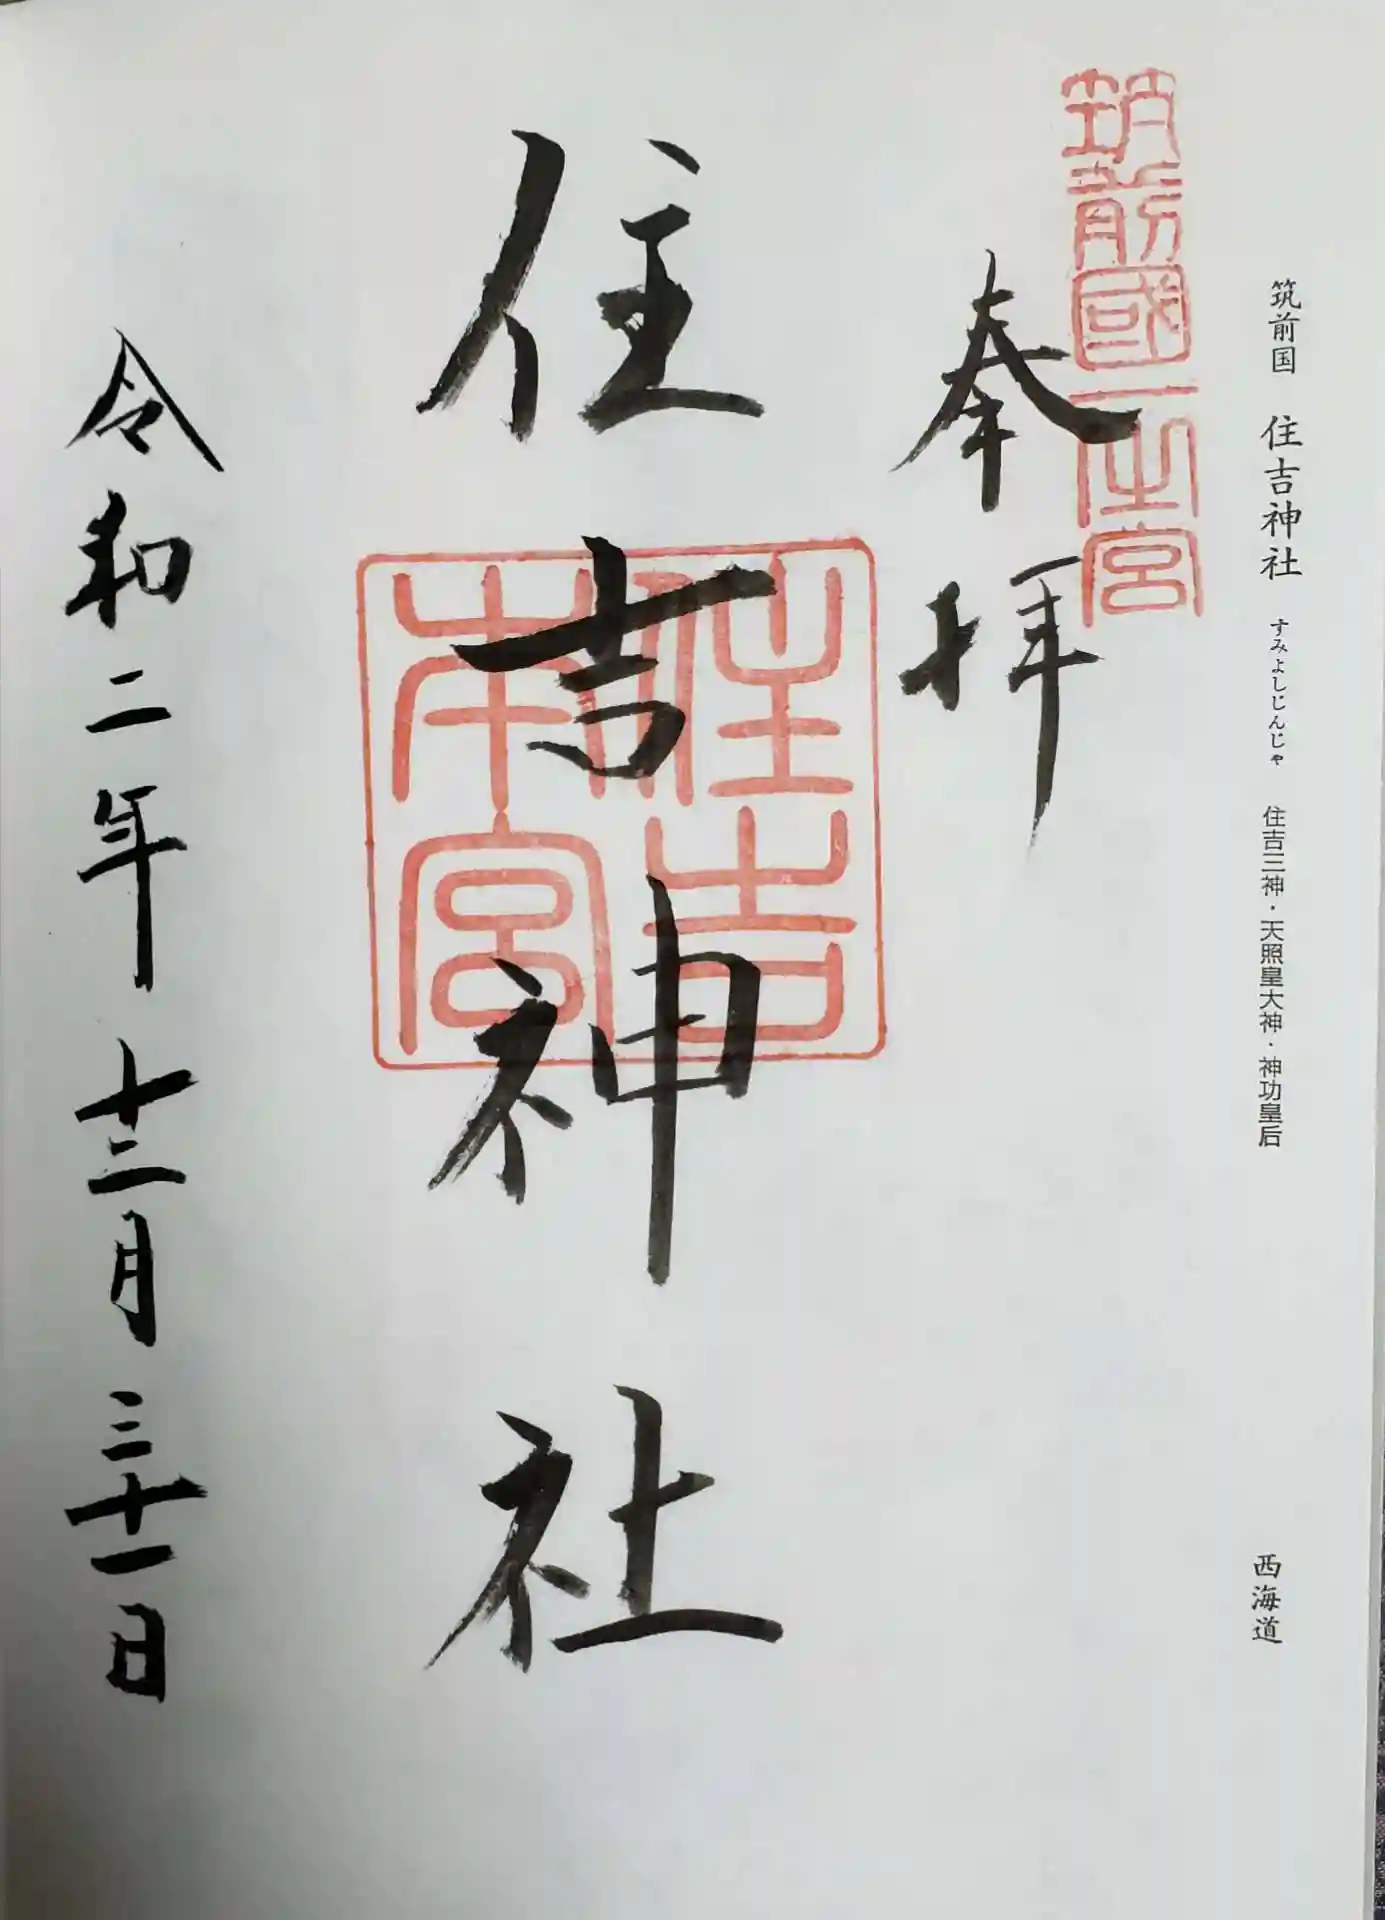 筑前国 住吉神社 すみよしじんじゃ 住吉三神・天照皇大神・神功皇后 西海道
筑前國一之宮
奉拝
住吉神社
住吉
本宮
令和二年十二月三十一日